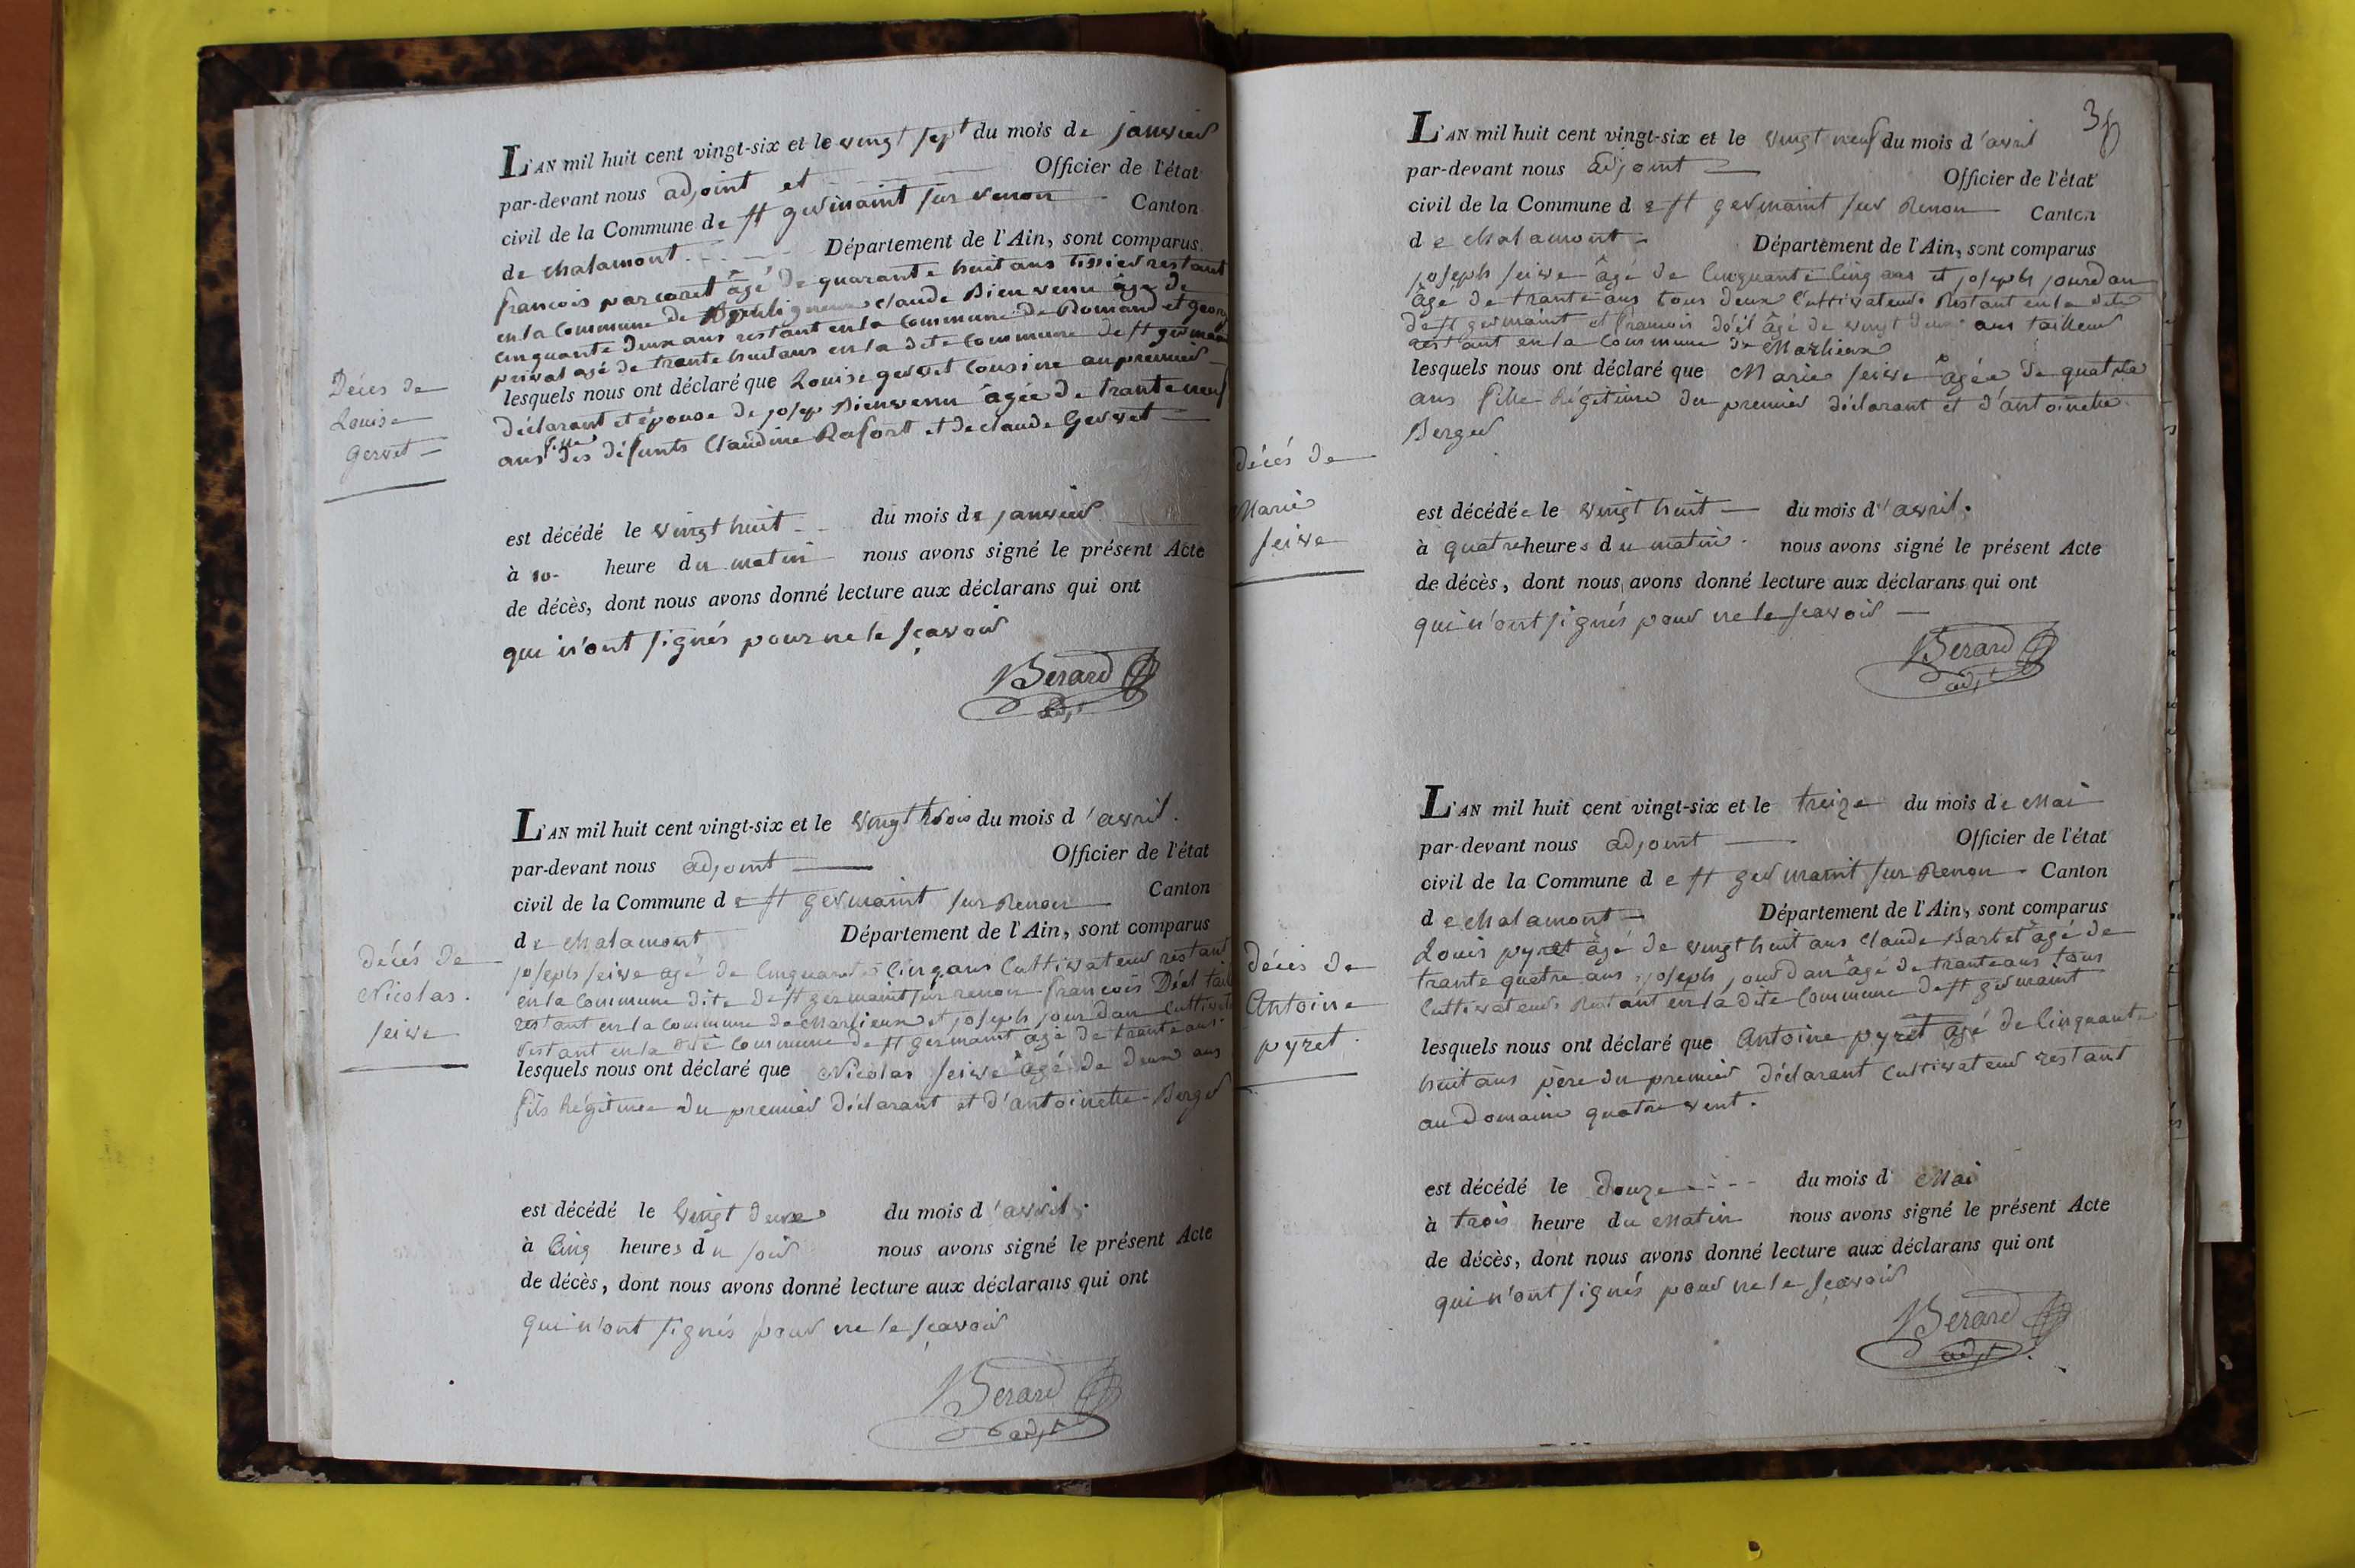 Décés de
Louise
Gervet
L'AN mil huit cent vingt-six et le vingt sept du mois de janvier
par-devant nous adjoint et Officier de l'état
civil de la Commune de st germaint sur renon Canton
de chalamont Département de l'Ain, sont comparus
francois âgé de quarante huit ans tissier restant
en la Commune de claude Bienvenu âgé de
cinquante deux ans restant en la Commune de Romand et
privat agé de trante huit ans en la dite Commune de st
lesquels nous ont déclaré que Louise gervet Cousine au premier
déclarant et épouse de josep Bienvenu âgée de trante neuf
ans fille des défunts Claudine Rafort et de claude Gervet
est décédé le vingt huit du mois de janvier
à 10 heure du matin nous avons signé le présent Acte
de décès, dont nous avons donné lecture aux déclarans qui ont
qui n'ont signés pour ne le sçavoir
Berard
adjt
Décés de
Nicolas.
seive
L'AN mil huit cent vingt-six et le vingt trois du mois d'avril.
par-devant nous adjoint Officier de l'état
civil de la Commune de st germaint sur Renon Canton
de chalamont Département de l'Ain, sont comparus
joseph seive agé de cinquante cinq ans Cultivateur restant
en la Commune dite de st germaint sur renon francois Déel
restant en la Commune de Marlieux et joseph jourdan
restant en la dite Commune de st germaint agé de trante ans
lesquels nous ont déclaré que Nicolas seive âgé de deux ans
fils légitime du premier déclarant et d'antoinette Berger
est décédé le vingt deux du mois d'avril.
à Cinq heures du soir nous avons signé le présent Acte
de décès, dont nous avons donné lecture aux déclarans qui ont
qui n'ont signés pour ne le sçavoir
Berard
adjt
décés de
Marie
seive
L'AN mil huit cent vingt-six et le vingt neuf du mois d'avril
par-devant nous adjoint Officier de l'état
civil de la Commune de st germaint sur Renon Canton
de chalamont Département de l'Ain, sont comparus
joseph seive âgé de Cinquante Cinq ans et joseph jourdan
âgé de trante ans tous deux Cultivateurs Restant en la dite
de st germaint et francois déél âgé de vingt deux ans tailleur
restant en la Commune de Marlieux
lesquels nous ont déclaré que Marie seive âgée de quatre
ans fille Légitime du premier déclarant et d'antoinette
Berger
est décédée le vingt huit du mois d'avril.
à quatre heures du matin. nous avons signé le présent Acte
de décès, dont nous avons donné lecture aux déclarans qui ont
qui n'ont signés pour ne le sçavoir
Berard
adjt
décés de
Antoine
pyret.
L'AN mil huit cent vingt-six et le treize du mois de Mai
par-devant nous adjoint Officier de l'état
civil de la Commune de st germaint sur Renon Canton
de chalamont Département de l'Ain, sont comparus
Louis pyret âgé de vingt huit ans claude Bartet âgé de
trante quatre ans joseph jourdan âgé de trante ans tous
Cultivateurs Restant en la dite Commune de st germaint
lesquels nous ont déclaré que Antoine pyret âgé de Cinquante
huit ans père du premier déclarant Cultivateur restant
au domaine quatre vent.
est décédé le douze du mois d Mai
à trois heure du Matin nous avons signé le présent Acte
de décès, dont nous avons donné lecture aux déclarans qui ont
qui n'ont signés pour ne le sçavoir
Berard
adjt